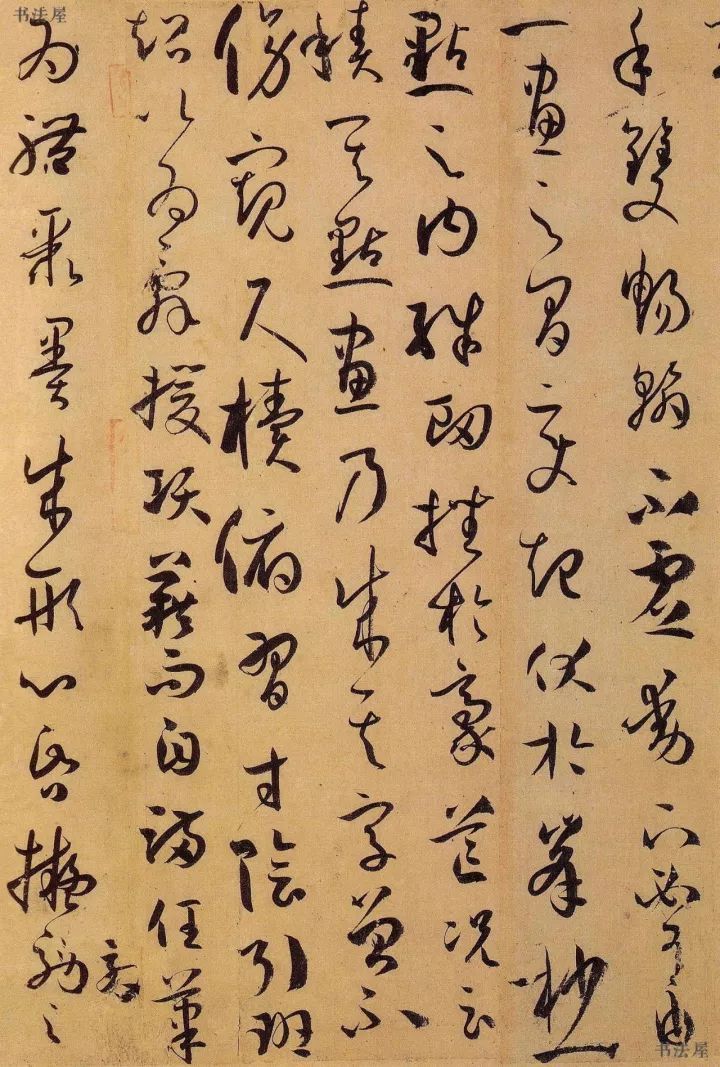 书法屋
手雙暢翰不虛動下必有由
一畫之間變起伏於峯杪一
點之內殊衄挫於豪芒況云
積其點畫乃成其字曾不
傍窺尺牘俯習寸陰引班
超以為辭援項籍而自滿任筆
為體聚墨成形心昏擬效之
书法屋